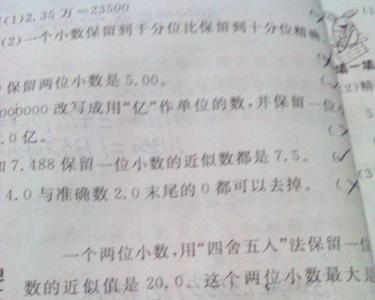 (1)2.35万=23500
(2)一个小数保留到千分位比保留到十分位精确
保留两位小数是 5.00。
000000 改写成用“亿”作单位的数，并保留一位
.0 亿。
7.488 保留一位小数的近似数都是 7.5。
4.0 与准确数 2.0 末尾的 0 都可以去掉。
一个两位小数，用“四舍五入”法保留一位
数的近似值是 20.0。这个两位小数最大是
填一填
(2)精